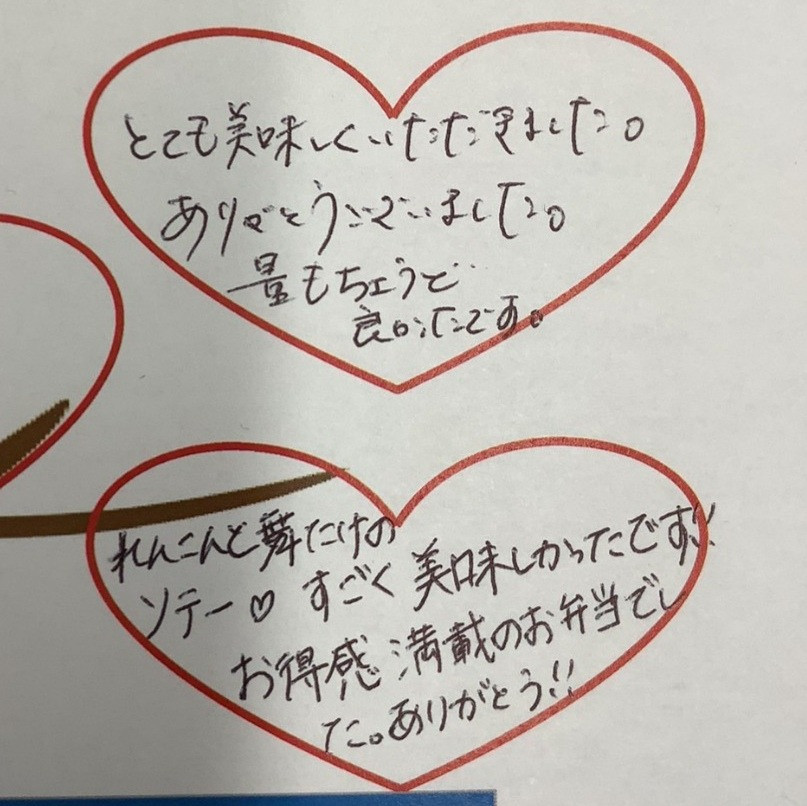 とても美味しくいただきました。
ありがとうございました。
量もちょうど
良かったです。
れんこんと舞たけの
ソテー♡ すごく美味しかったです!!
お得感満載のお弁当でし
た。ありがとう!!